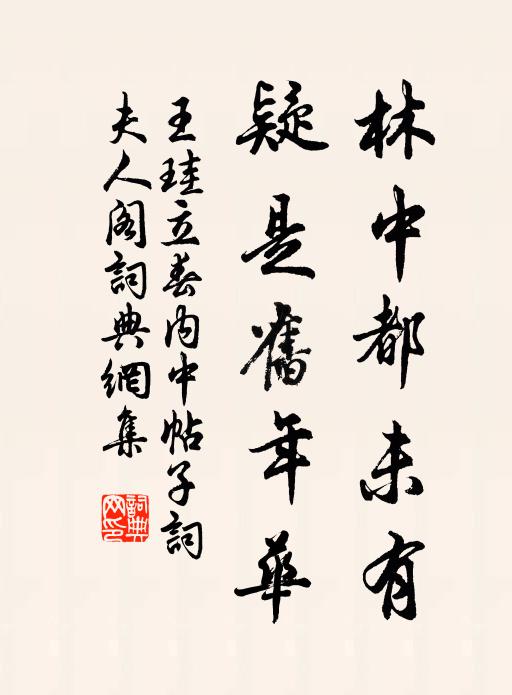 林中都未有
疑是舊年華
王珪立春内中帖子詞
夫人阁詞典網集
詞典
网印